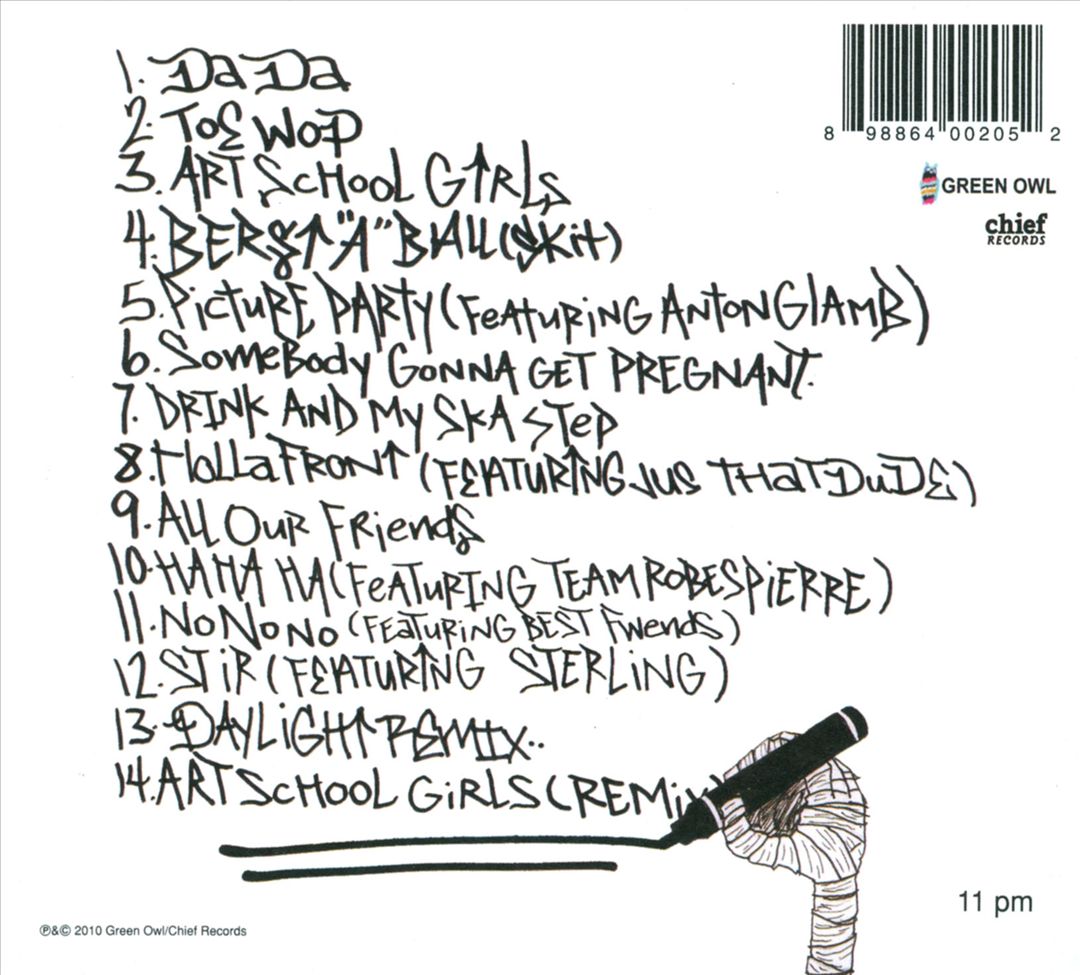 1. DaDa
2. TOE WOP
3. ART SCHOOL GIRLS
4. BERST "A" BALL (SKit)
5. PictuRE PARTY (FeaTuRiNG ANTON GlAMB)
6. SomeBody GoNNA GET PREGNANT.
7. DRINK AND My SKA STeP
8. HollaFRONT (FEATURING JUS THaT DuDE)
9. All OuR FRiends
10. HAHA HA (FeaTuRING TEAM ROBESPiERRE)
11. NoNoNo (FEaTURiNG BEST Fwends)
12. STiR (FEATURING STERLiNG)
13. DAYLiGHT REMIX..
14. ART SCHOOL GiRLS (REMix)
8 98864 00205 2
GREEN OWL
chief
RECORDS
11 pm
℗&© 2010 Green Owl/Chief Records